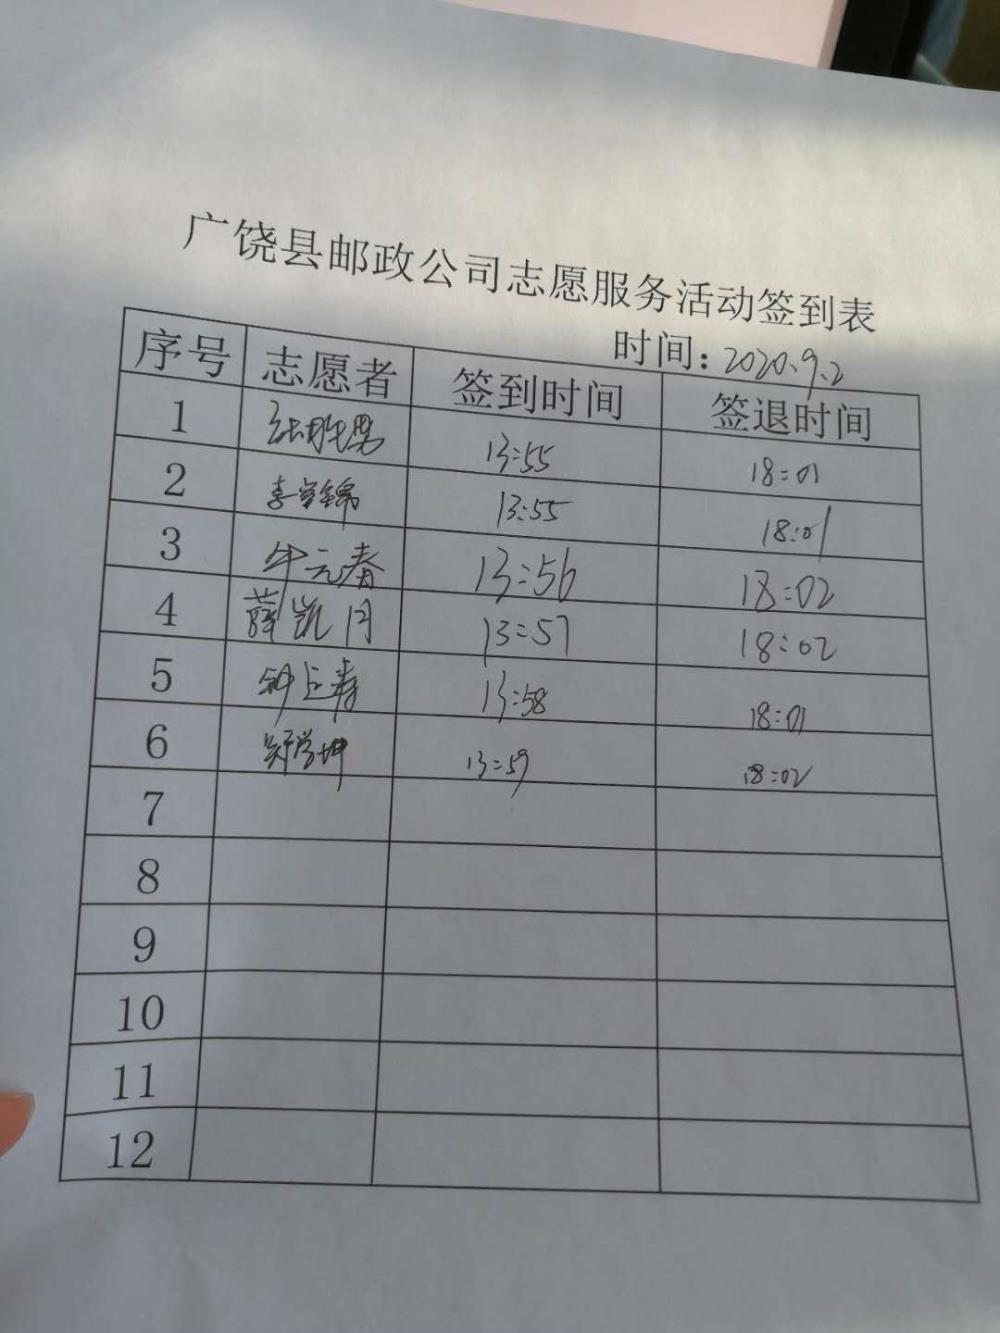 广饶县邮政公司志愿服务活动签到表
时间：2020.9.2
序号 志愿者 签到时间 签退时间
1 张胜男 13:55 18:01
2 13:55 18:01
3 牛元春 13:56 18:02
4 薛凯月 13:57 18:02
5 13:58 18:01
6 13:59 18:02
7
8
9
10
11
12